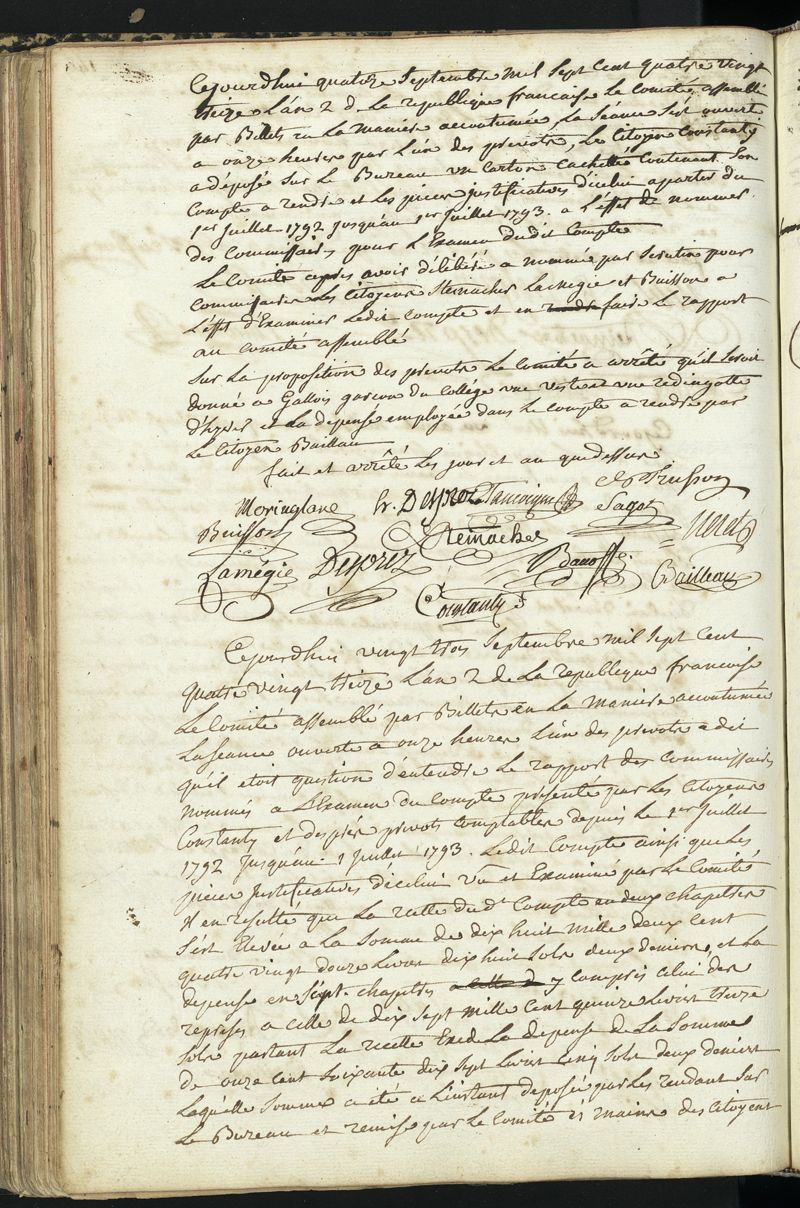 Cejourdhui quatorze Septembre mil Sept Cent quatre vingt
treize L'an 2 d La republique francaise Le Comité assemblé
par Billets en La maniere accoutumée, La Séance S'est ouvert
a onze heures par L'un des prevots, Le Citoyen Constanty
a déposé Sur Le Bureau un Carton Cachetté Contenant Son
Compte a rendre et Les pieces justificatives d'icelui apartir du
1er Juillet 1792 jusqu'au 1er Juillet 1793. a L'effet de nommer
des Commissaires pour L'Examen dudit Compte
Le Comité après avoir délibéré a nommé par Scrutin pour
Commissaires Les Citoyens Sternacher Lamegie et Buisson a
L'effet d'Examiner Ledit compte et en rendre faire Le rapport
au Comité assemblé
Sur La proposition des prevots Le Comité a arrêté qu'il Seroit
donné a Gallois garcon du College une veste et une redingotte
d'hyver et La depense employée dans Le compte a rendre par
Le Citoyen Baillau
fait et arrêté Les jour et an quedessus
Moringlane hr. Desproz Tancoigne Pinson
Buisson Sternacher Sagot Neret
Lamégie Desprez Banoffe Bailleau
Constanty
Cejourdhui vingt trois Septembre mil Sept Cent
quatre vingt treize L'an 2 de La republique francoise
Le Comité assemblé par Billets en La maniere accoutumée
La Seance ouverte a onze heures L'un des prevots a dit
qu'il etoit question d'entendre Le rapport des Commissaires
nommés a L'Examen du Compte présenté par Les Citoyens
Constanty et desprès prevots Comptables depuis Le 1er Juillet
1792 Jusqu'au 1 Juillet 1793. Ledit Compte ainsi que Les
pieces Justificatives d'icelui Vu et Examiné par Le Comité
Il en resulte que La recette dudt Compte en deux chapitres
S'est Elevée a La Somme de dix huit mille deux Cent
quatre vingt douze Livres dix huit Sols deux deniers, et La
depense en Sept. chapitres a celle d y compris celui des
reprises a celle de dix Sept mille Cent quinze Livres treize
Sols partant La recette Excede La depense de La Somme
de onze Cent Soixante dix Sept Livres Cinq Sols deux deniers
Laquelle Somme a été a L'instant deposée par Les rendant Sur
Le Bureau et remise par Le Comité ès mains des Citoyens